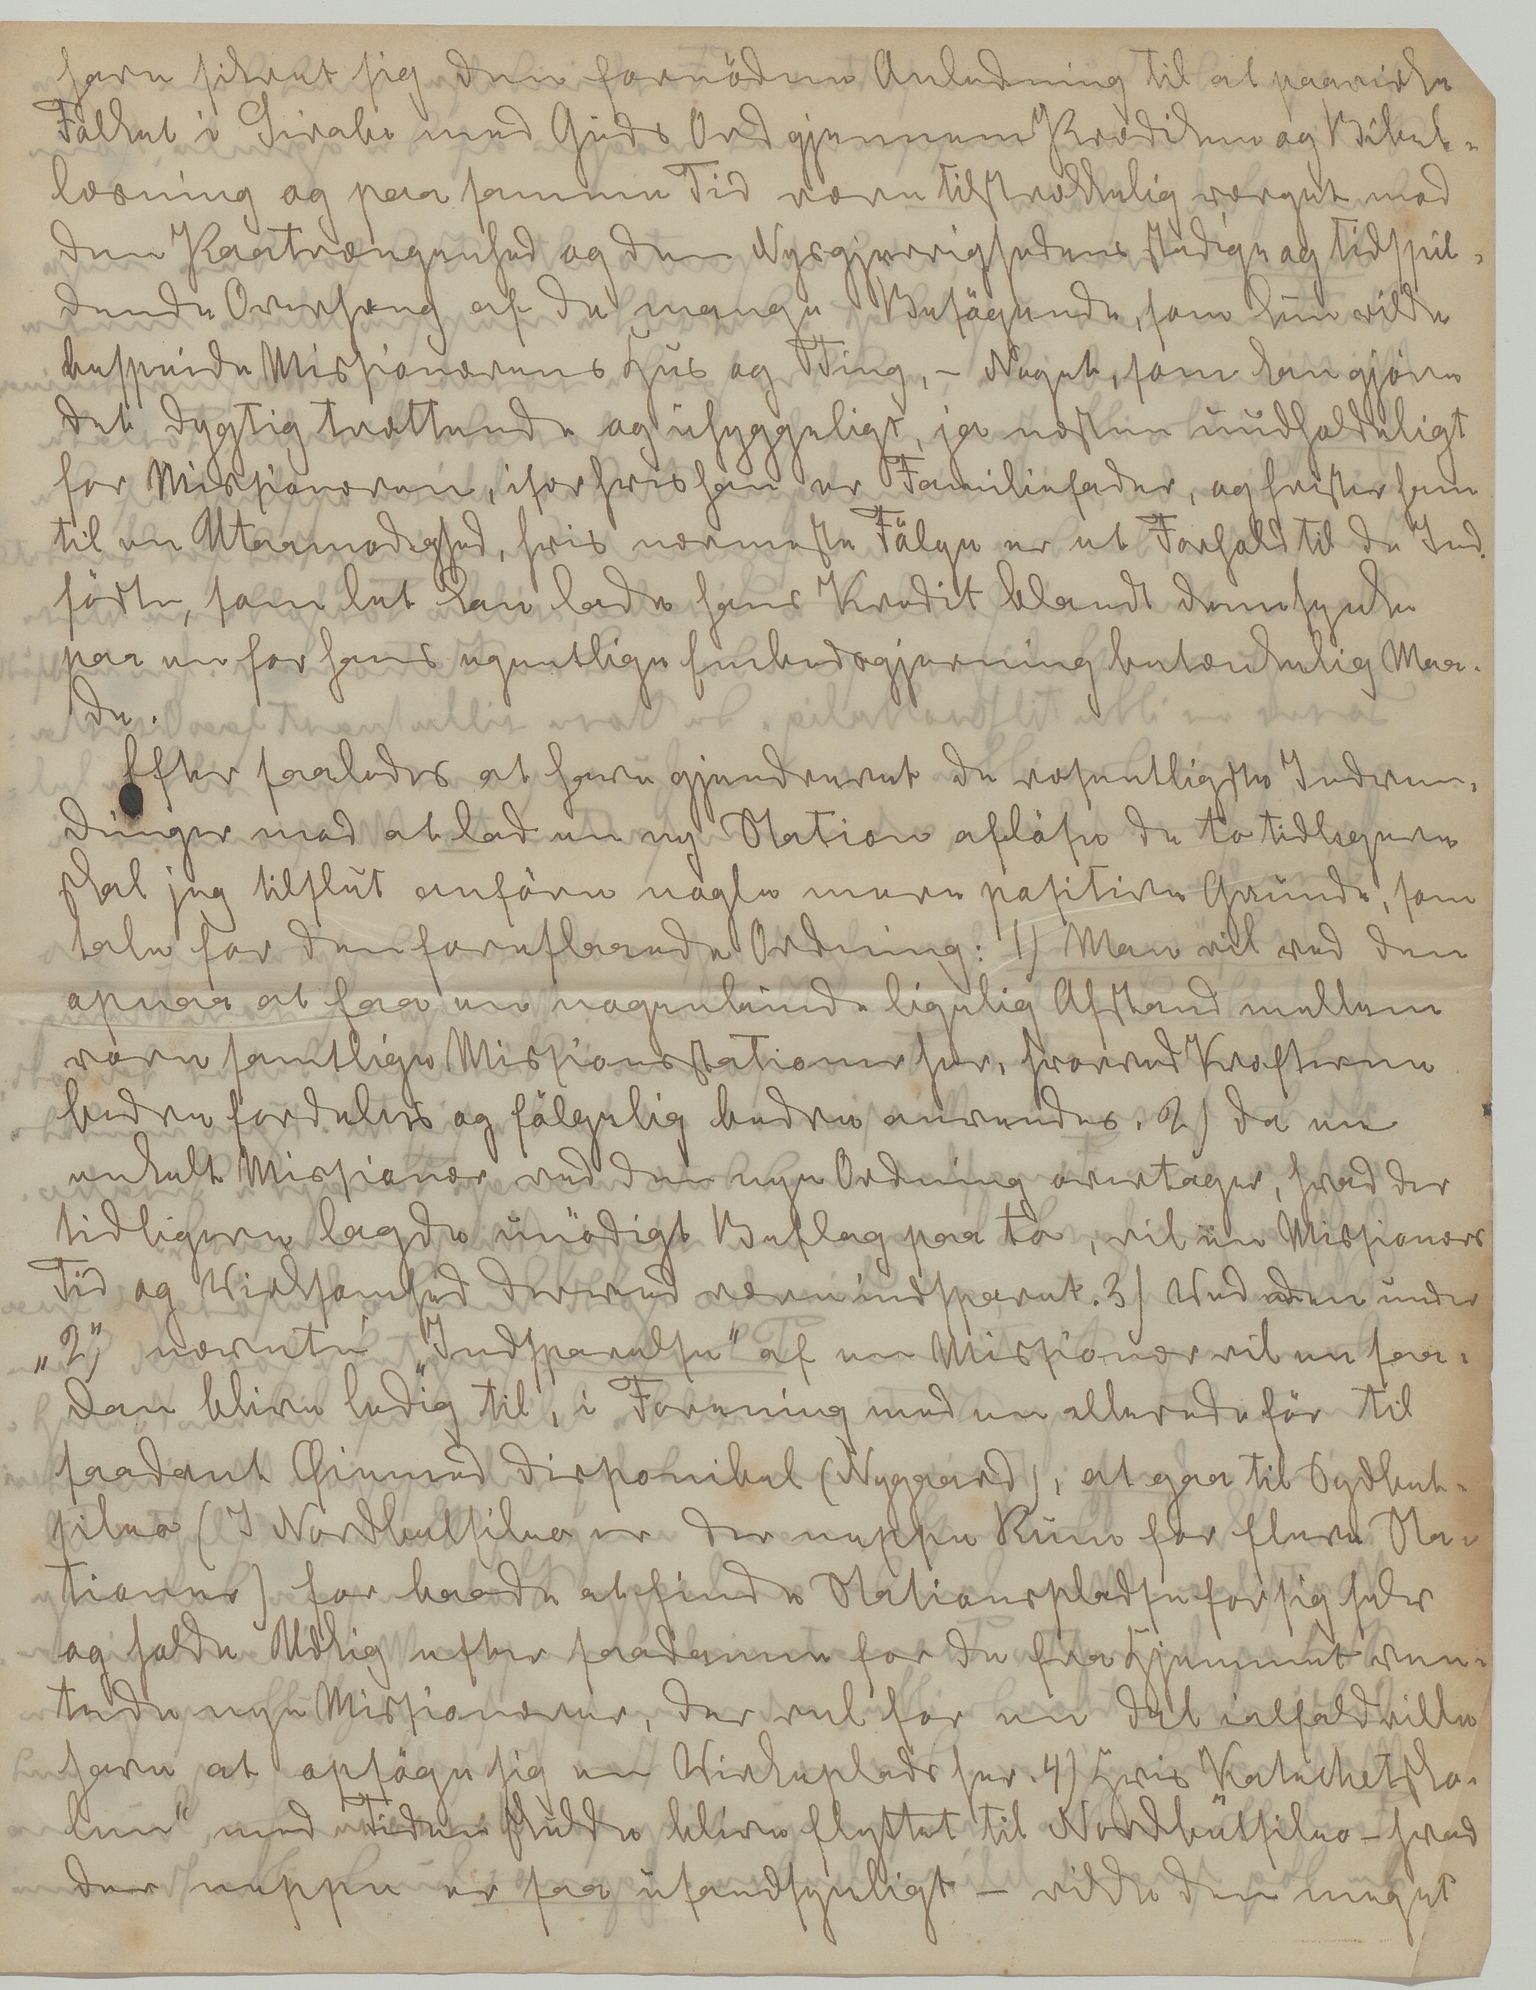 have sikret sig den fornödne Anledning til at paavirke
Folket i Sirabe med Guds Ord gjennem Prædiken og Bibel-
læsning og paa samme Tid være tilstrækkelig værget mod
den Paatrængenhed og den Nysgjerrighedens stadige og tidspil-
dende Overhæng af de mange Besögende, som kun vilde
bespeide Missionærens Hus og Ting, - Noget, som kan gjöre
det dygtig trættende og uhyggeligt, ja næsten uudholdeligt
for Missionæren, især hvis han er Familiefader, og frister ham
til en Utaamodighed, hvis nærmeste Fölge er et Forhold til de Ind-
födte, som let kan lade hans Kredit blandt dem synke
paa en for hans egentlige Embedsgjerning betænkelig Maa-
de.
Efter saaledes at have gjendrevet de væsentligste Indven-
dinger mod at lad en ny Station aflöse de to tidligere
skal jeg tilslut anföre nogle mere positive Grunde, som
tale for den foreslaaede Ordning: 1) Man vil ved den
opnaa at faa en nogenlunde ligelig Afstand mellem
vore samtlige Missionsstationer her, hvorved Kræfterne
bedre fordeles og fölgelig bedre anvendes. 2) Da en
enkelt Missionær ved den nye Ordning overtager, hvad der
tidligere lagde unödigt Beslag paa to, vil en Missionærs
Tid og Virksomhed derved være indsparet. 3) Ved den under
„2)" nævnte „Indsparelse" af en Missionær vil en saa-
dan blive ledig til, i Forening med en allerede för til
saadant Öiemed disponibel (Nygaard), at gaa til Sydbet-
sileo (I Nordbetsileo er der neppe Rum for flere Sta-
tioner) for baade at finde Stationspladse for sig selv
og holde Udkig efter saadanne for de fra Hjemmet ven-
tede nye Missionærer, der vel for en Del ialfald ville
have at opsöge sig en Virkeplads her. 4) Hvis Katechetsko-
len" med Tiden skulde blive flyttet til Nordbetsileo - hvad
der neppe er saa usandsynligt - vilde den meget